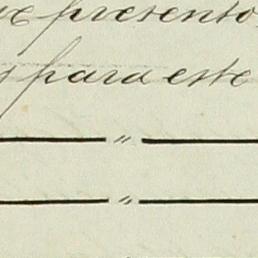 presento
para este
〃
〃